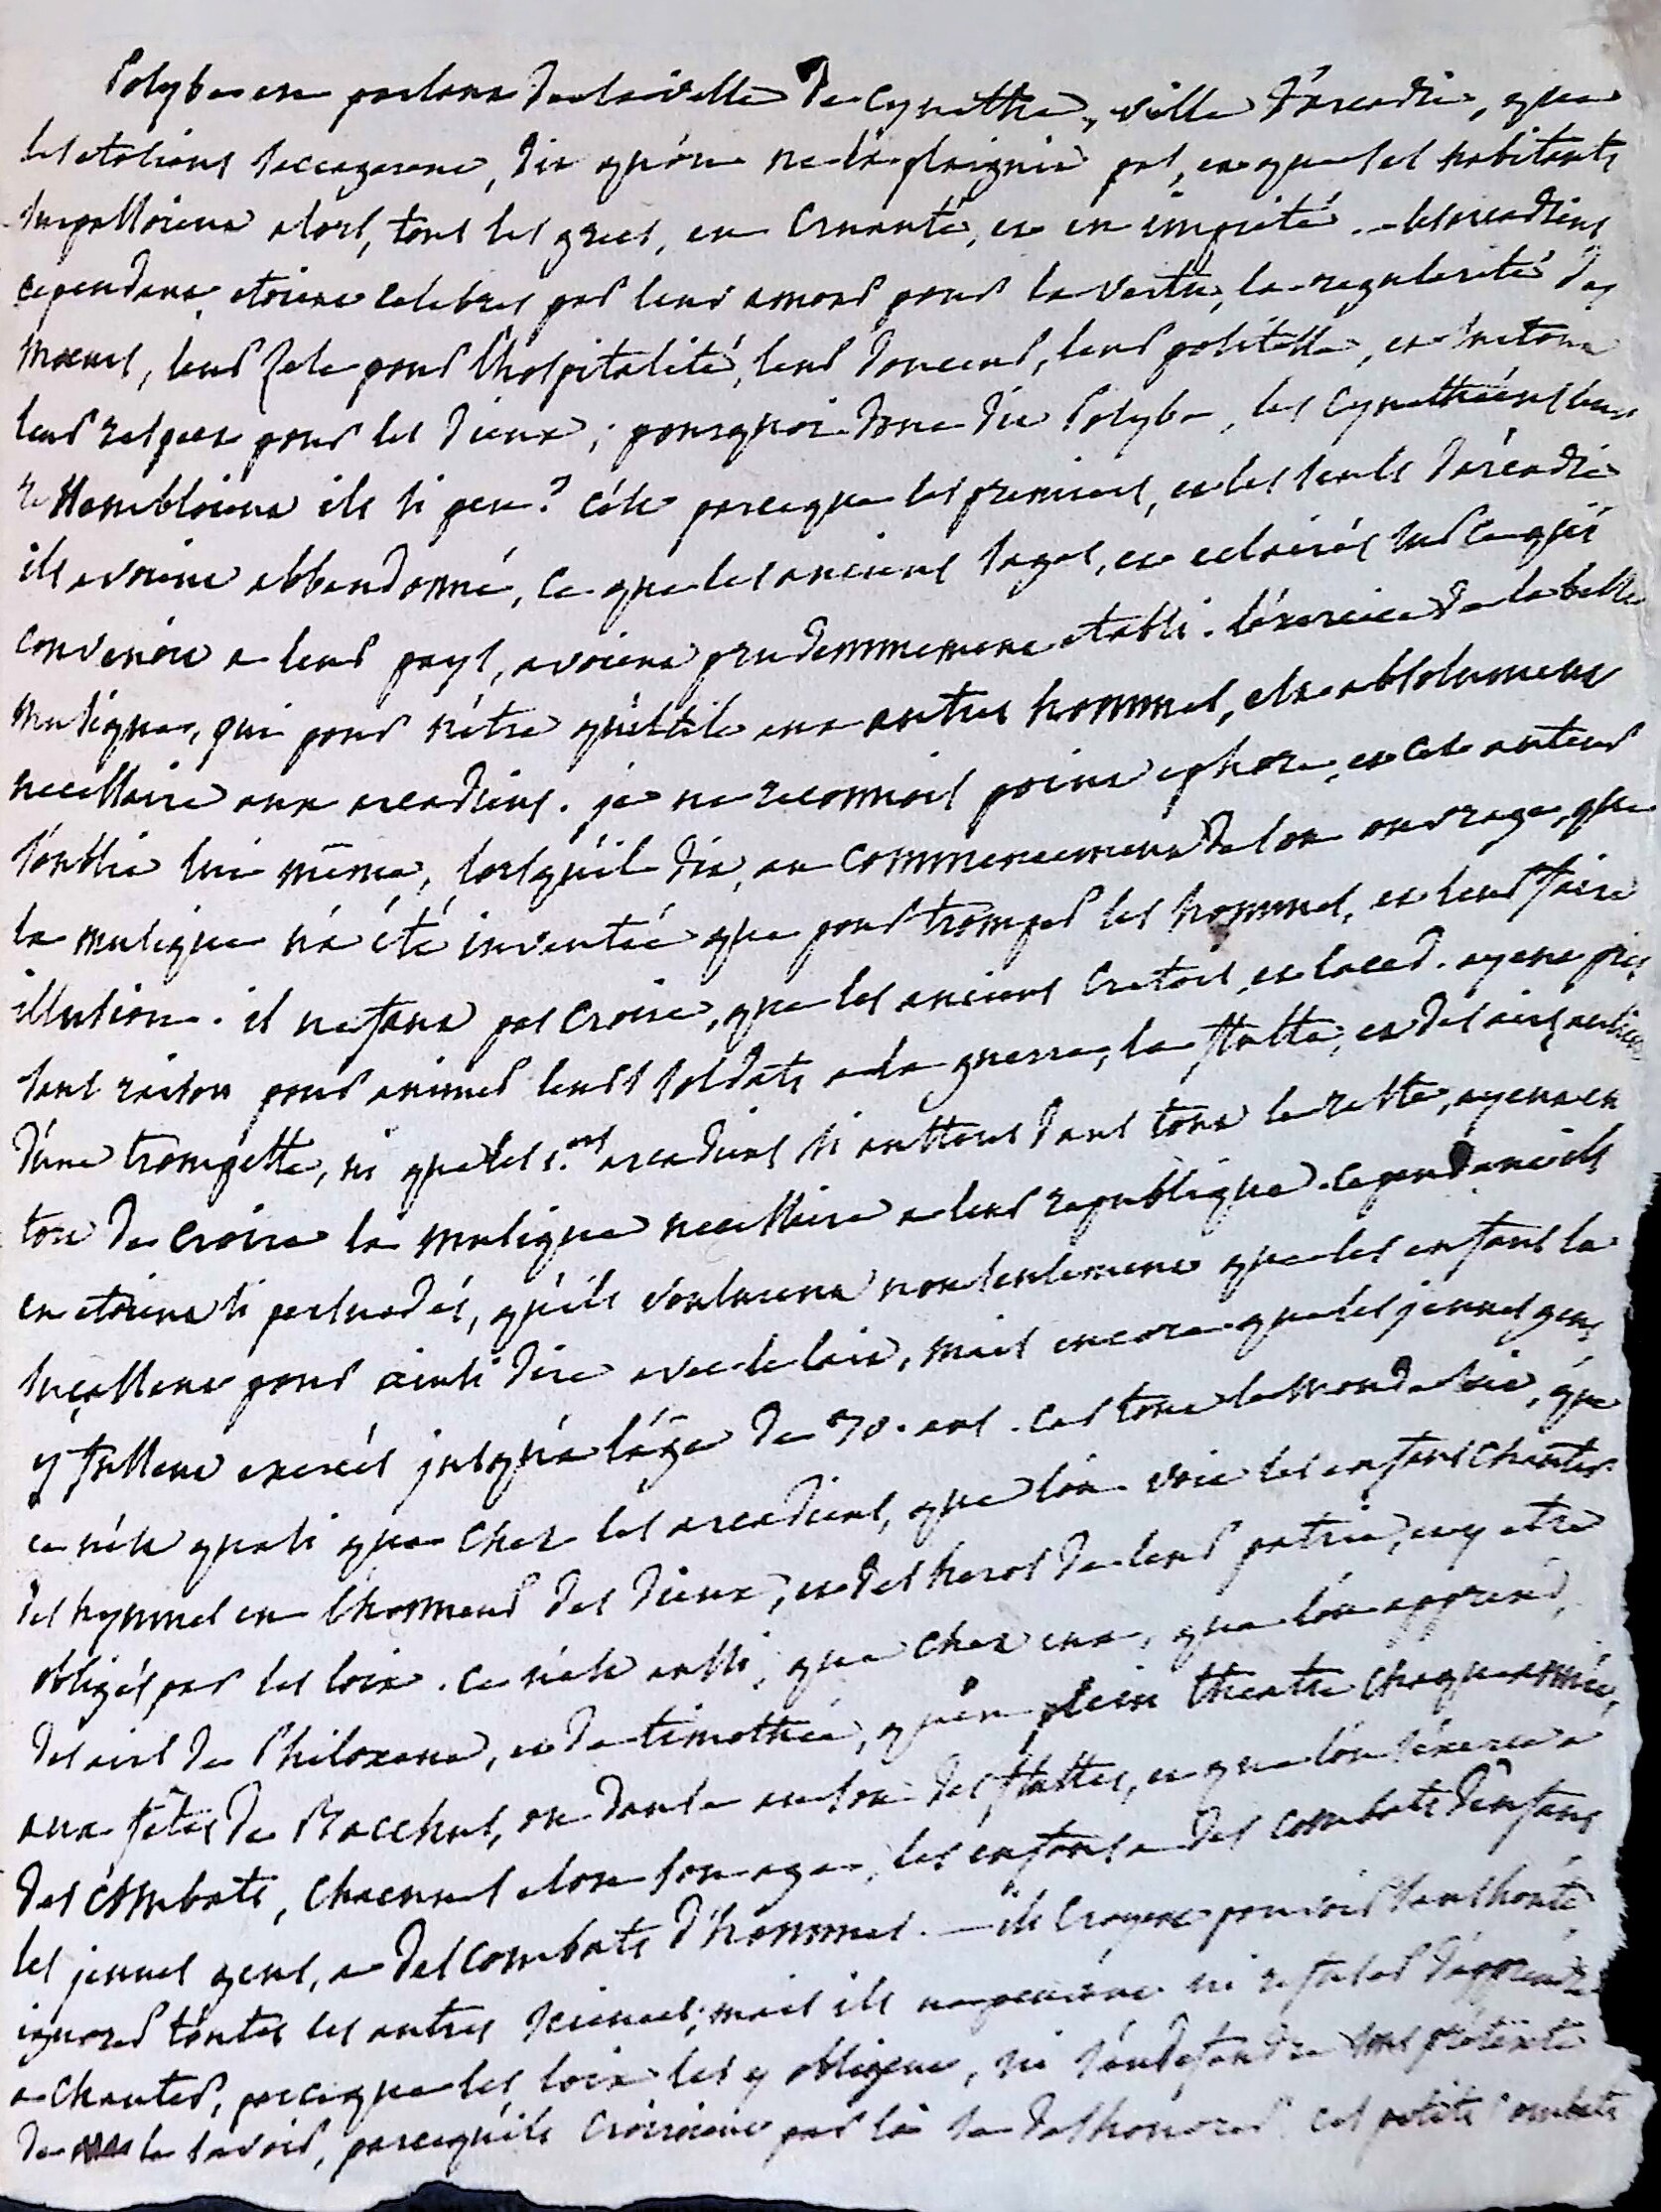 Polybe en parlant de la ville de Cynethe, ville d'arcadie, que
les etoliens saccagerent, dit qu'on ne la plaignit pas, et que ses habitants
surpassoient alors, tous les grecs, en Cruauté, et en impieté. – les arcadiens
cependant, etoient celebres par leur amour pour la vertu, la regularité des
moeurs, leur zele pour l'hospitalité, leur douceur, leur politesse, et surtout
leur respect pour les dieux; pourquoi donc dit Polybe, les Cynethéens leur
ressembloient ils si peu? c'est parceque les premiers, et les seuls d'arcadie
ils avoient abbandonné, ce que les anciens sages, et eclairés sur ce qui
convenoit a leur pays, avoient prudemmement etabli. l'exercice de la belle
musique, qui pour n'être qu'utile aux autres hommes, est absolument
necessaire aux arcadiens. je ne reconnois point ephore, et cet auteur
s'oublie lui même, lorsqu'il dit, au commencement de son ouvrage, que
la musique n'a été inventée que pour tromper les hommes, et leur faire
illusion. il ne faut pas croire, que les anciens Cretois, et laced. ayent pris
sans raison pour animer leurs soldats a la guerre, la flutte, et des airs au lieu
d'une trompette, ni que les 1.ers arcadiens si austeres dans tout le reste, ayent eu
tort de croire la musique necessaire a leur republique. cependant ils
en etoient si persuadés, qu'ils voulurent non seulement que les enfans la
suçassent pour ainsi dire avec le lait, mais encore que les jeunes gens
y fussent exercés jusqu'a l'áge de 30. ans. car tout le monde sait, que
ce n'est quasi que chez les arcadiens, que l'on voit les enfans chanter
des hymnes en l'honneur des dieux, et des heros de leur patrie, et y etre
obligés par les loix. ce n'est aussi, que chez eux, que l'on apprend,
des airs de Philoxene, et de timothée, qu'en plein theatre chaque année,
aux fêtes de Bacchus, on danse au son des fluttes, et que l'on s'exerce a
des combats, chacun selon son age, les enfans a des combats d'enfans
les jeunes gens, a des combats d'hommes. – ils croyent pouvoir sans honte
ignorer toutes les autres sciences; mais ils ne peuvent ni refuser d'apprendre
a chanter, parceque les loix les y obligent, ni s'en defendre sous prétexte
de le savoir, parcequ'ils croiroient par là se deshonorer. ces petits combats